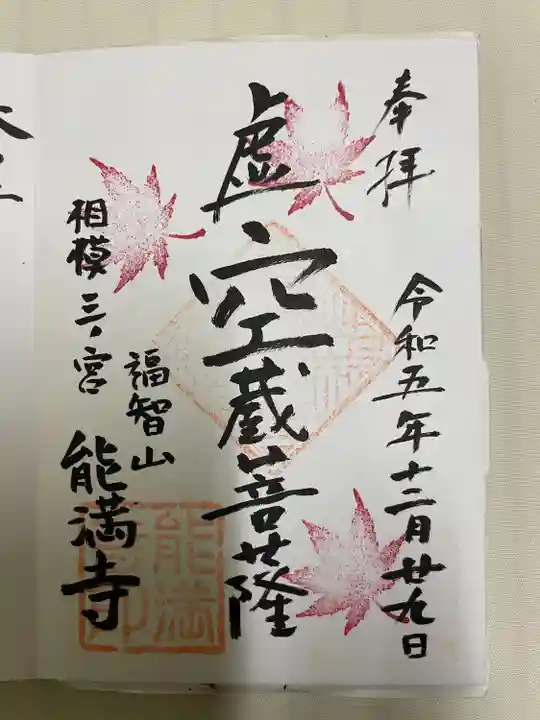 奉拝
令和五年十二月廿九日
虚空蔵菩薩
福智山
能満寺
相模三ノ宮